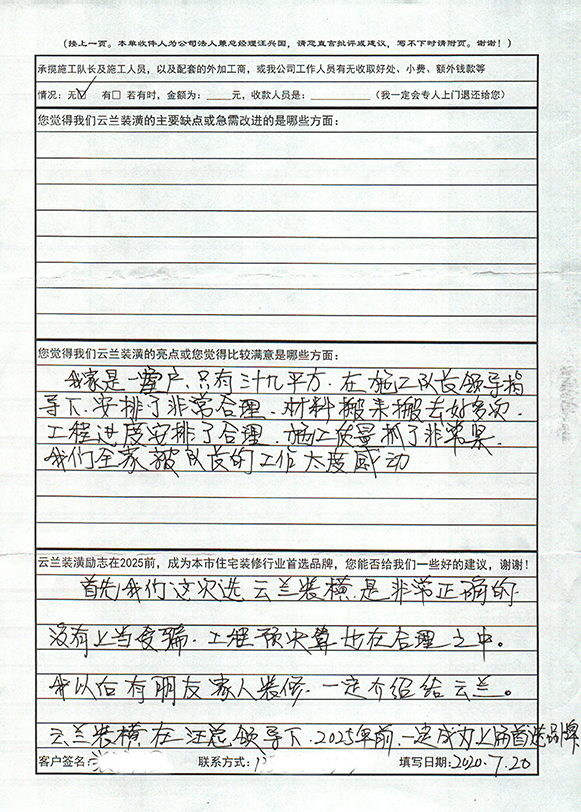 (接上一页。本单收件人为公司法人兼总经理汪兴国，请您直言批评或建议，写不下时请附页。谢谢！)
承揽施工队长及施工人员，以及配套的外加工商，或我公司工作人员有无收取好处、小费、额外钱款等
情况：无☑ 有□ 若有时，金额为：____元，收款人员是：________（我一定会专人上门退还给您）
您觉得我们云兰装潢的主要缺点或急需改进的是哪些方面：
您觉得我们云兰装潢的亮点或您觉得比较满意是哪些方面：
我家是一室户，只有三十九平方．在施工队长领导指
导下．安排了非常合理．材料搬来搬去好多次．
工程进度安排了合理．施工质量抓了非常紧．
我们全家被队长的工作太度感动
云兰装潢励志在2025前，成为本市住宅装修行业首选品牌，您能否给我们一些好的建议，谢谢！
首先我们这次选云兰装横是非常正确的
没有上当受骗．工程预决算也在合理之中。
我以后有朋友家人装修．一定介绍给云兰。
云兰装横在汪总领导下．2025年前．一定成为上海首选品牌
客户签名： 联系方式：1 填写日期：2020.7.20